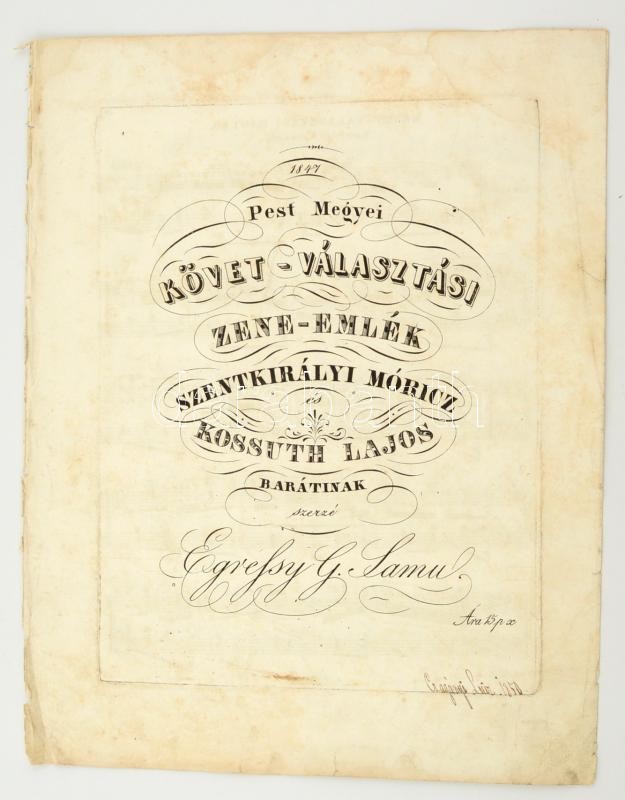 1847
Pest Megyei
KÖVET-VÁLASZTÁSI
ZENE-EMLÉK
SZENTKIRÁLYI MÓRICZ
és
KOSSUTH LAJOS
BARÁTINAK
szerzé
Egressy G. Samu.
Ára 15 p x
1850